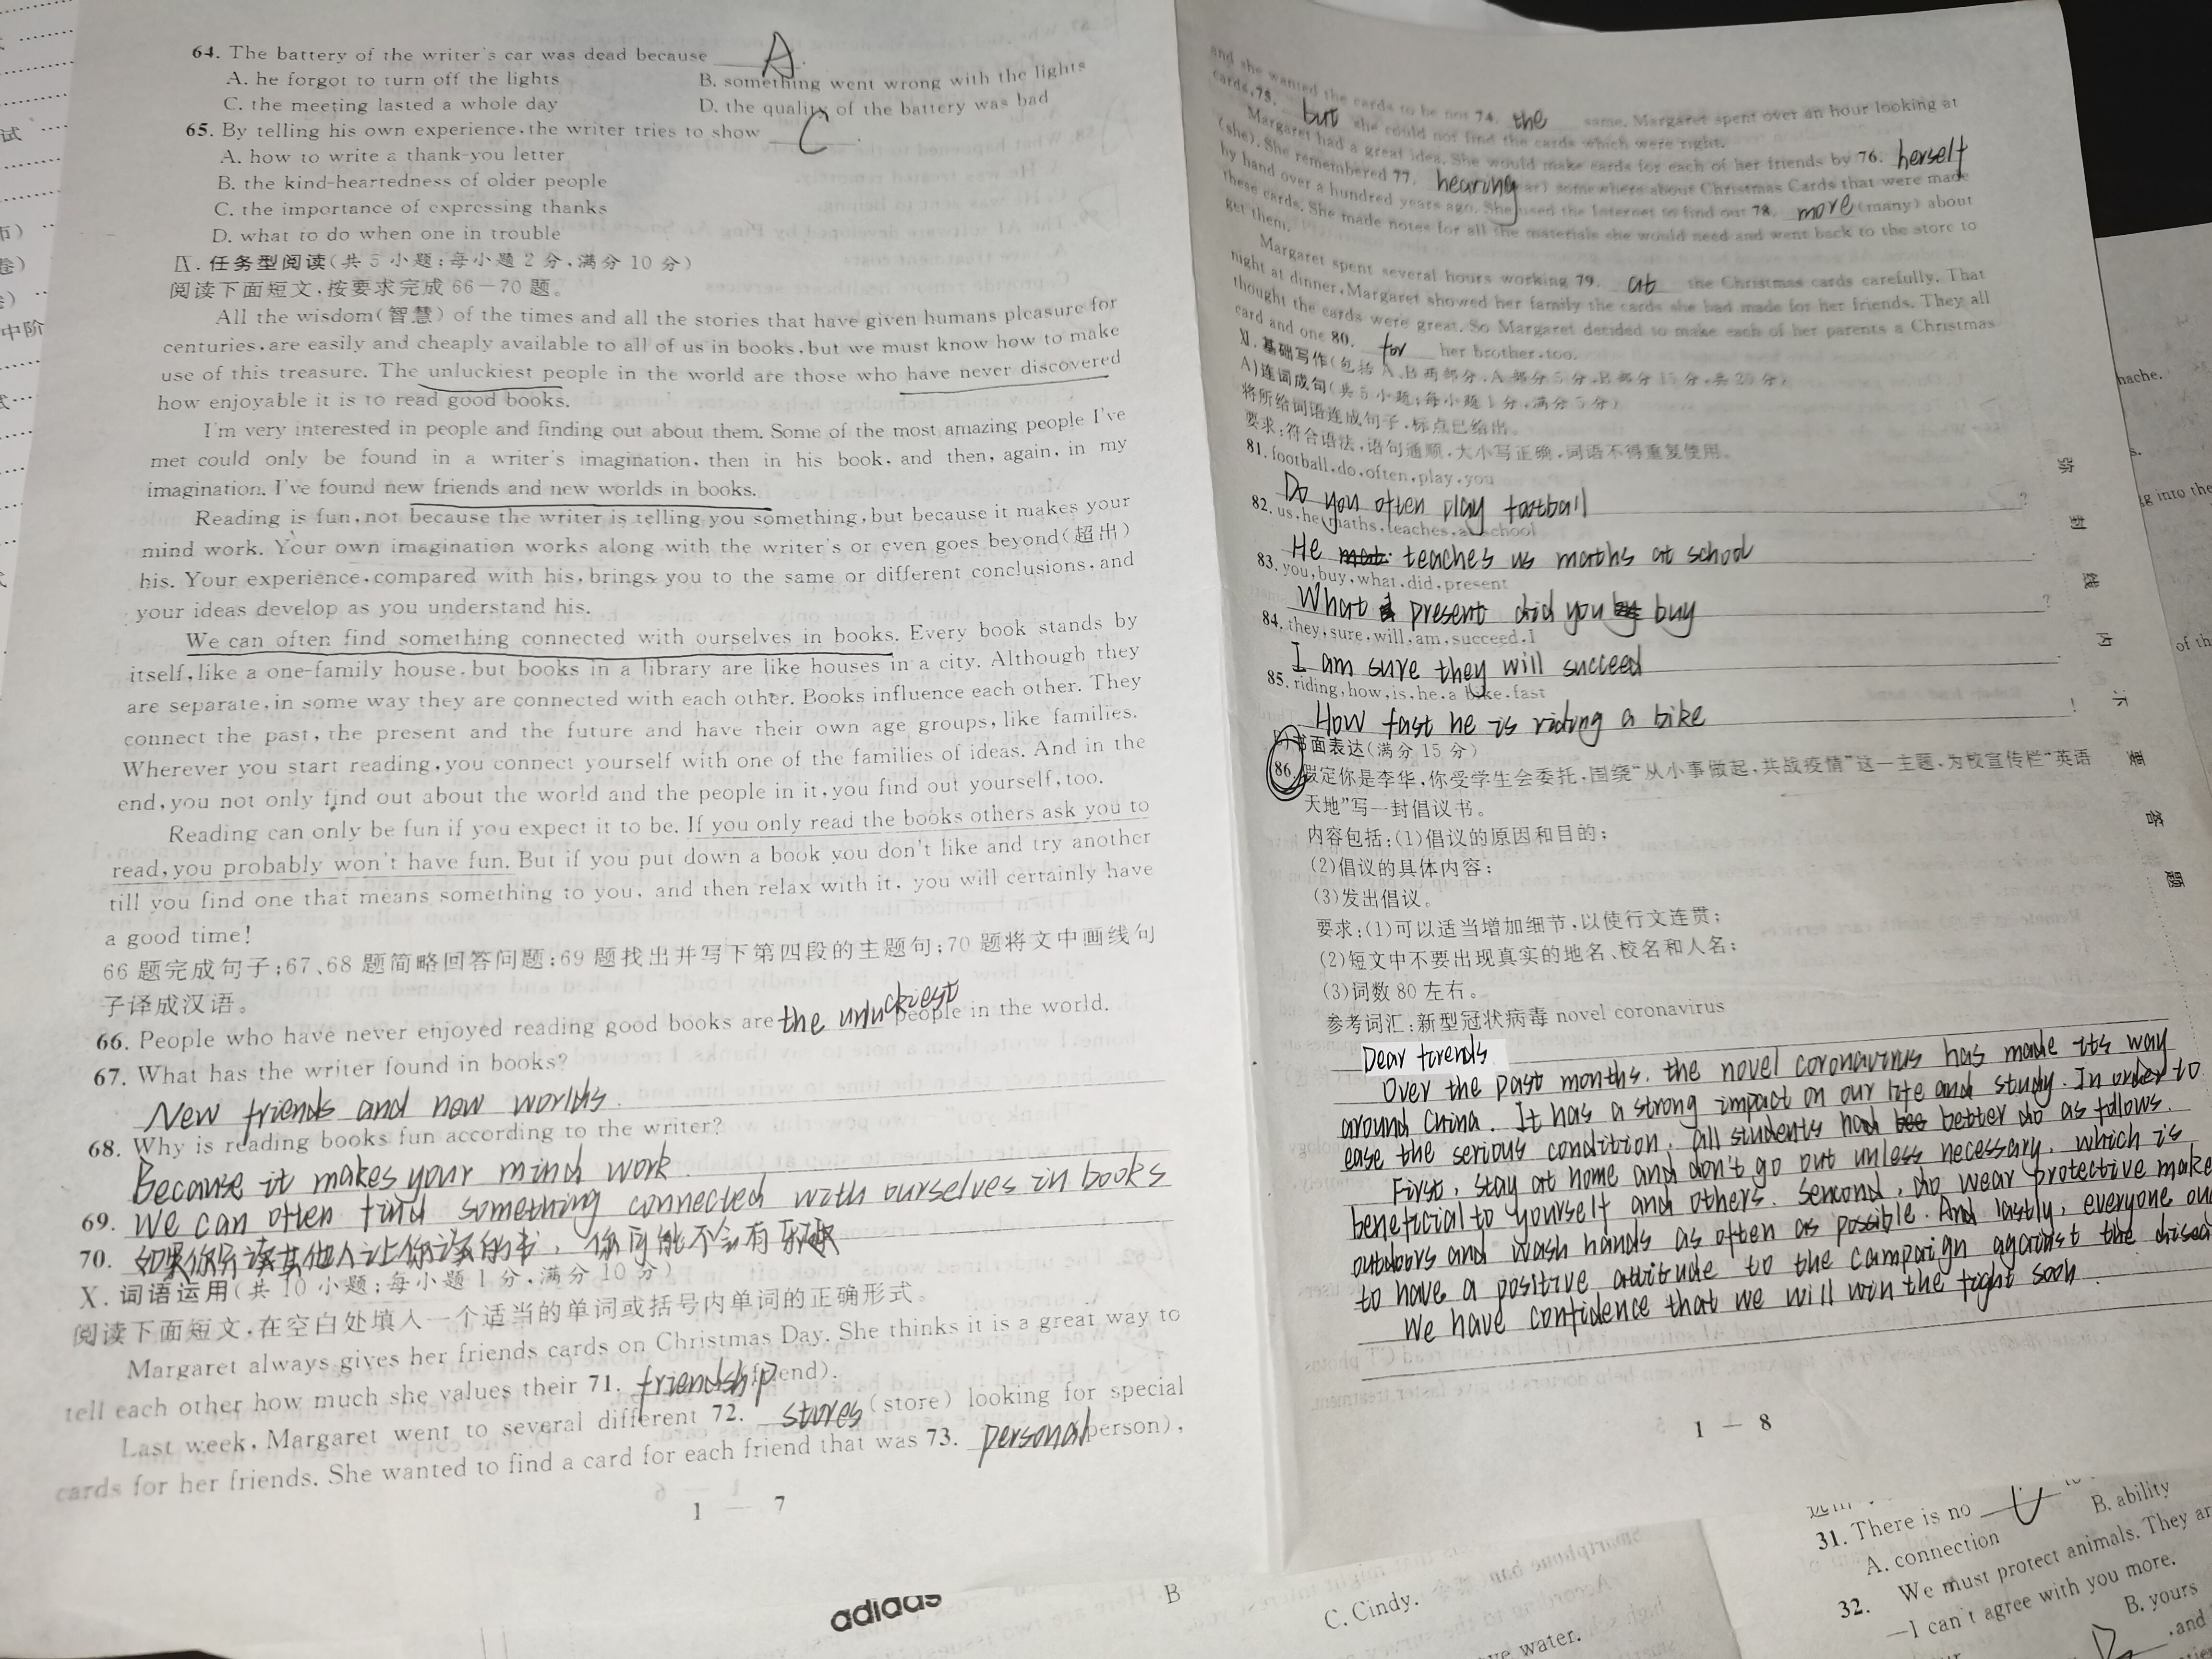 64. The battery of the writer's car was dead because A.
A. he forgot to turn off the lights
B. something went wrong with the lights
C. the meeting lasted a whole day
D. the quality of the battery was bad
65. By telling his own experience, the writer tries to show C.
A. how to write a thank-you letter
B. the kind-heartedness of older people
C. the importance of expressing thanks
D. what to do when one in trouble
Ⅸ. 任务型阅读(共 5 小题;每小题 2 分,满分 10 分)
阅读下面短文,按要求完成 66-70 题。
All the wisdom(智慧) of the times and all the stories that have given humans pleasure for
centuries, are easily and cheaply available to all of us in books, but we must know how to make
use of this treasure. The unluckiest people in the world are those who have never discovered
how enjoyable it is to read good books.
I'm very interested in people and finding out about them. Some of the most amazing people I've
met could only be found in a writer's imagination, then in his book, and then, again, in my
imagination. I've found new friends and new worlds in books.
Reading is fun, not because the writer is telling you something, but because it makes your
mind work. Your own imagination works along with the writer's or even goes beyond(超出)
his. Your experience, compared with his, brings you to the same or different conclusions, and
your ideas develop as you understand his.
We can often find something connected with ourselves in books. Every book stands by
itself, like a one-family house, but books in a library are like houses in a city. Although they
are separate, in some way they are connected with each other. Books influence each other. They
connect the past, the present and the future and have their own age groups, like families.
Wherever you start reading, you connect yourself with one of the families of ideas. And in the
end, you not only find out about the world and the people in it, you find out yourself, too.
Reading can only be fun if you expect it to be. If you only read the books others ask you to
read, you probably won't have fun. But if you put down a book you don't like and try another
till you find one that means something to you, and then relax with it, you will certainly have
a good time!
66 题完成句子;67、68 题简略回答问题;69 题找出并写下第四段的主题句;70 题将文中画线句
子译成汉语。
66. People who have never enjoyed reading good books are the unluckiest people in the world.
67. What has the writer found in books?
New friends and new worlds.
68. Why is reading books fun according to the writer?
Because it makes your mind work.
69. We can often find something connected with ourselves in books
70. 如果你只读其他人让你读的书,你可能不会有乐趣
Ⅹ. 词语运用(共 10 小题;每小题 1 分,满分 10 分)
阅读下面短文,在空白处填入一个适当的单词或括号内单词的正确形式。
Margaret always gives her friends cards on Christmas Day. She thinks it is a great way to
tell each other how much she values their 71. friendship (friend).
Last week, Margaret went to several different 72. stores (store) looking for special
cards for her friends. She wanted to find a card for each friend that was 73. personal (person),
1 — 7
and she wanted the cards to be not 74. the same. Margaret spent over an hour looking at
cards, 75. but she could not find the cards which were right.
Margaret had a great idea. She would make cards for each of her friends by 76. herself
(she). She remembered 77. hearing (hear) somewhere about Christmas Cards that were made
by hand over a hundred years ago. She used the Internet to find out 78. more (many) about
these cards. She made notes for all the materials she would need and went back to the store to
get them.
Margaret spent several hours working 79. at the Christmas cards carefully. That
night at dinner, Margaret showed her family the cards she had made for her friends. They all
thought the cards were great. So Margaret decided to make each of her parents a Christmas
card and one 80. for her brother, too.
Ⅺ. 基础写作(包括 A、B 两部分,A 部分 5 分,B 部分 15 分,共 20 分)
A)连词成句(共 5 小题;每小题 1 分,满分 5 分)
将所给词语连成句子,标点已给出。
要求:符合语法,语句通顺,大小写正确,词语不得重复使用。
81. football, do, often, play, you
Do you often play football ?
82. us, he, maths, teaches, at school
He teaches us maths at school .
83. you, buy, what, did, present
What present did you buy ?
84. they, sure, will, am, succeed, I
I am sure they will succeed .
85. riding, how, is, he, a bike, fast
How fast he is riding a bike !
B)书面表达(满分 15 分)
86. 假定你是李华,你受学生会委托,围绕“从小事做起,共战疫情”这一主题,为校宣传栏“英语
天地”写一封倡议书。
内容包括:(1)倡议的原因和目的;
(2)倡议的具体内容;
(3)发出倡议。
要求:(1)可以适当增加细节,以使行文连贯;
(2)短文中不要出现真实的地名、校名和人名;
(3)词数 80 左右。
参考词汇:新型冠状病毒 novel coronavirus
Dear friends
Over the past months, the novel coronavirus has made its way
around China. It has a strong impact on our life and study. In order to
ease the serious condition, all students had better do as follows.
First, stay at home and don't go out unless necessary, which is
beneficial to yourself and others. Sencond, do wear protective make
outdoors and wash hands as often as possible. And lastly, everyone
to have a positive attitude to the campaign against the
We have confidence that we will win the fight soon.
1 — 8
弥 封 线 内 不 要 答 题
中阶
hache.
g into the
of th
adidas
B
C. Cindy.
ve water.
31. There is no
A. connection
B. ability
32. We must protect animals. They ar
—I can't agree with you more.
B. yours
, and